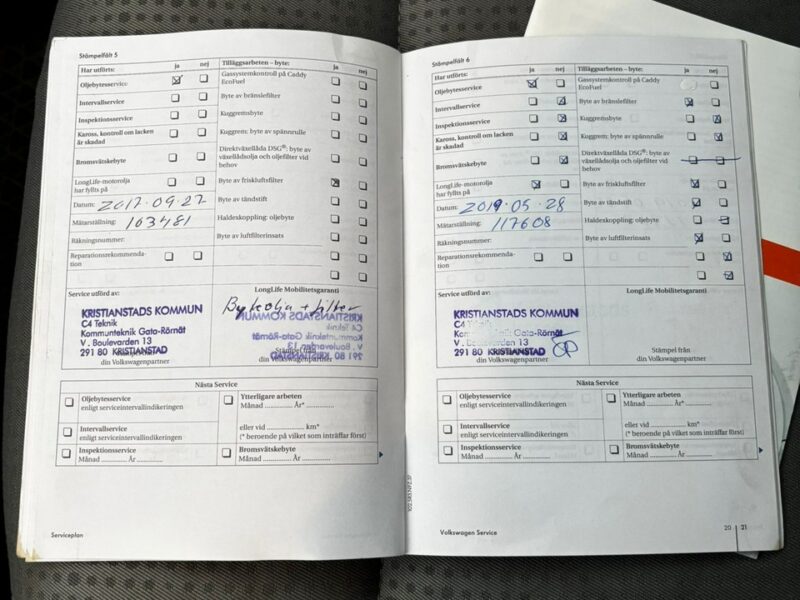 Stämpelfält 5
Har utförts: ja nej
Oljebytesservice
Intervallservice
Inspektionsservice
Kaross, kontroll om lacken
är skadad
Bromsvätskebyte
LongLife-motorolja
har fyllts på
Datum: 2017-09-27
Mätarställning: 103481
Räkningsnummer:
Reparationsrekommenda-
tion
Tilläggsarbeten – byte: ja nej
Gassystemkontroll på Caddy
EcoFuel
Byte av bränslefilter
Kuggremsbyte
Kuggrem: byte av spännrulle
Direktväxellåda DSG®: byte av
växellådsolja och oljefilter vid
behov
Byte av friskluftsfilter
Byte av tändstift
Haldexkoppling: oljebyte
Byte av luftfilterinsats
Service utförd av:
KRISTIANSTADS KOMMUN
C4 Teknik
Kommunteknik Gata-Rörnät
V. Boulevarden 13
291 80 KRISTIANSTAD
din Volkswagenpartner
LongLife Mobilitetsgaranti
olja + filter
KRISTIANSTADS KOMMUN
C4 Teknik
Kommunteknik Gata-Rörnät
V. Boulevarden 13
291 80 KRISTIANSTAD
Stämpel från
din Volkswagenpartner
Nästa Service
Oljebytesservice
enligt serviceintervallindikeringen
Intervallservice
enligt serviceintervallindikeringen
Inspektionsservice
Månad ............ År ............
Ytterligare arbeten
Månad ............ År* ............
eller vid ............ km*
(* beroende på vilket som inträffar först)
Bromsvätskebyte
Månad ............ År ............
Serviceplan
Stämpelfält 6
Har utförts: ja nej
Oljebytesservice
Intervallservice
Inspektionsservice
Kaross, kontroll om lacken
är skadad
Bromsvätskebyte
LongLife-motorolja
har fyllts på
Datum: 2019-05-28
Mätarställning: 117608
Räkningsnummer:
Reparationsrekommenda-
tion
Tilläggsarbeten – byte: ja nej
Gassystemkontroll på Caddy
EcoFuel
Byte av bränslefilter
Kuggremsbyte
Kuggrem: byte av spännrulle
Direktväxellåda DSG®: byte av
växellådsolja och oljefilter vid
behov
Byte av friskluftsfilter
Byte av tändstift
Haldexkoppling: oljebyte
Byte av luftfilterinsats
Service utförd av:
KRISTIANSTADS KOMMUN
C4
Gata-Rörnät
V. Boulevarden 13
291 80 KRISTIANSTAD
din Volkswagenpartner
LongLife Mobilitetsgaranti
Stämpel från
din Volkswagenpartner
Nästa Service
Oljebytesservice
enligt serviceintervallindikeringen
Intervallservice
enligt serviceintervallindikeringen
Inspektionsservice
Månad ............ År ............
Ytterligare arbeten
Månad ............ År* ............
eller vid ............ km*
(* beroende på vilket som inträffar först)
Bromsvätskebyte
Månad ............ År ............
Volkswagen Service
20 21